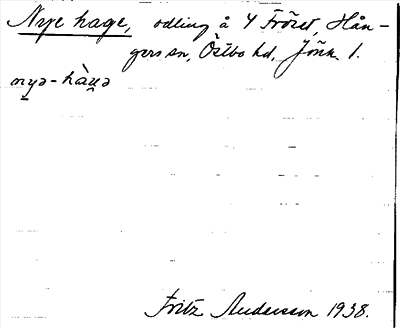 Nye hage, odling å 4 Fröset, Hån-
gers sn, Östbo hd, Jönk l.
nyə-hàuə
Fritz Andersson 1938.